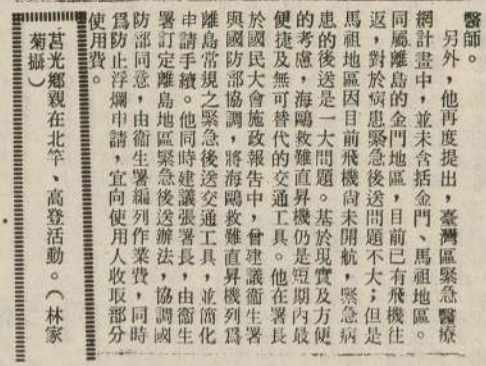 醫師。
　另外，他再度提出，臺灣區緊急醫療
網計畫中，並未含括金門、馬祖地區。
同屬離島的金門地區，目前已有飛機往
返，對於病患緊急後送問題不大；但是
馬祖地區因目前飛機尙未開航，緊急病
患的後送是一大問題。基於現實及方便
的考慮，海鷗救難直昇機仍是短期內最
便捷及無可替代的交通工具。他在署長
於國民大會施政報告中，曾建議衞生署
與國防部協調，將海鷗救難直昇機列爲
離島常規之緊急後送交通工具，並簡化
申請手續。他同時建議張署長，由衞生
署訂定離島地區緊急後送辦法，協調國
防部同意，由衞生署編列作業費，同時
爲防止浮爛申請，宜向使用人收取部分
使用費。
莒光鄉親在北竿、高登活動。（林家
菊攝）